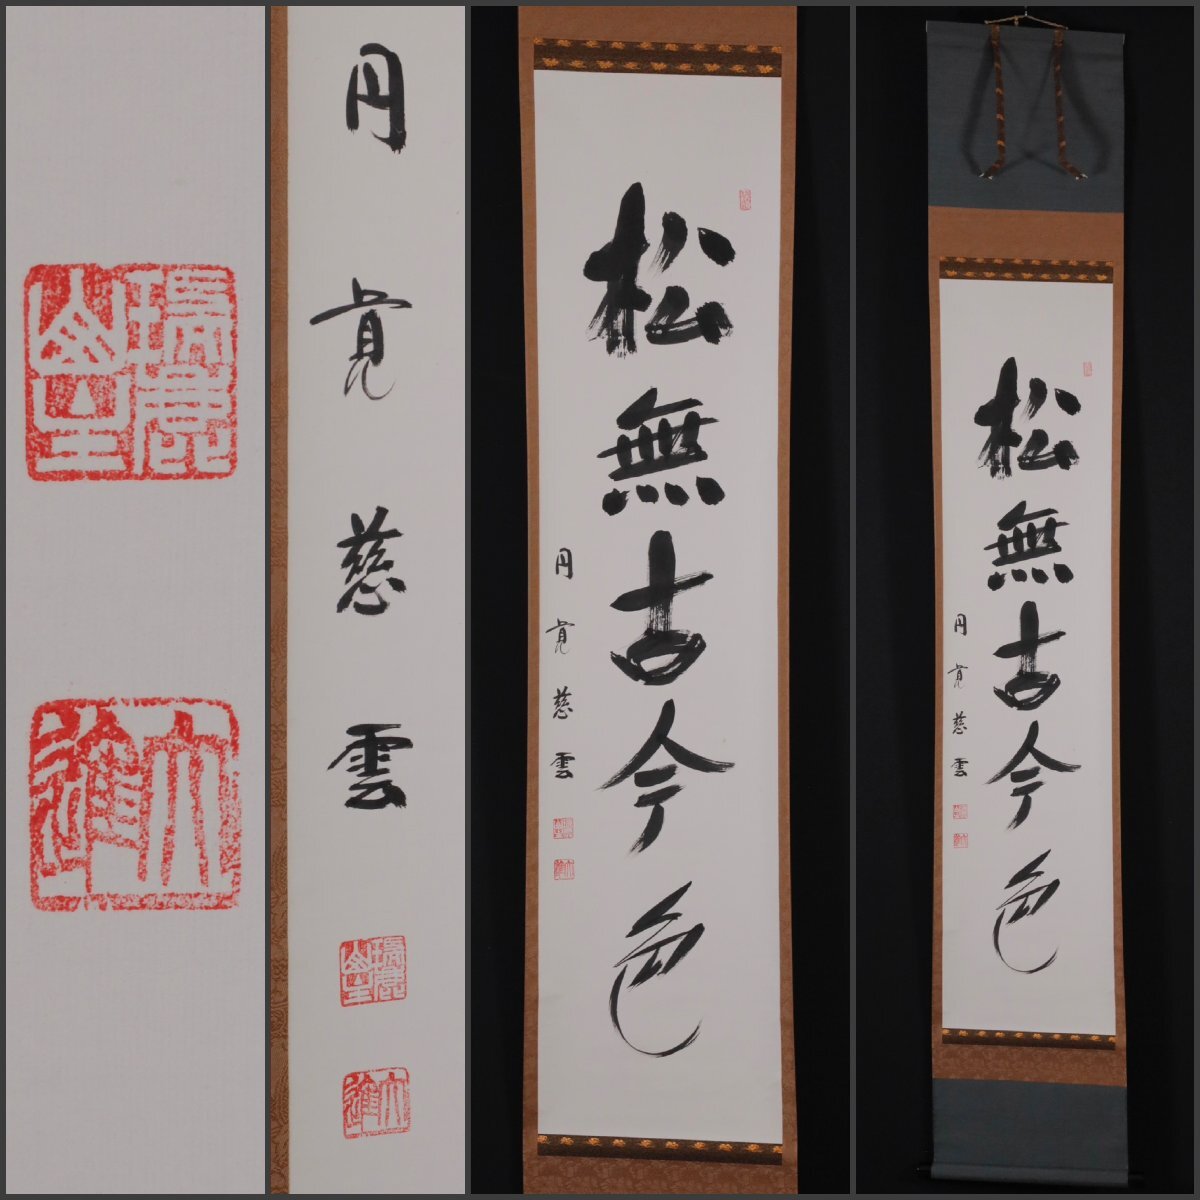 円覚慈雲
瑞鹿山主
大進
松無古今色
円覚慈雲
松無古今色
円覚慈雲